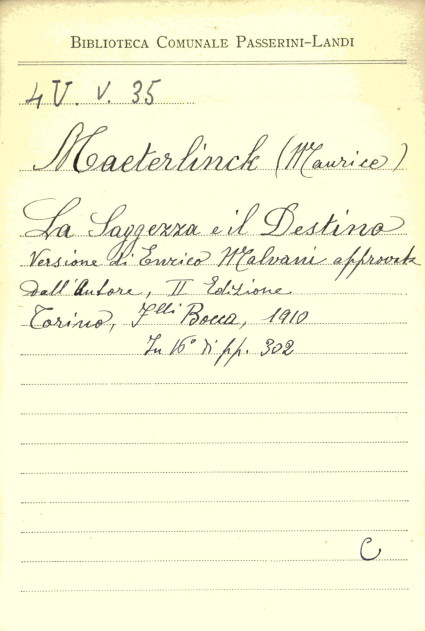 BIBLIOTECA COMUNALE PASSERINI-LANDI
4 V. V. 35
Maeterlinck (Maurice)
La Saggezza e il Destino
Versione di Enrico Malvani approvata
dall'Autore, II Edizione
Torino, Flli Bocca, 1910
In 16° di pp. 302
C